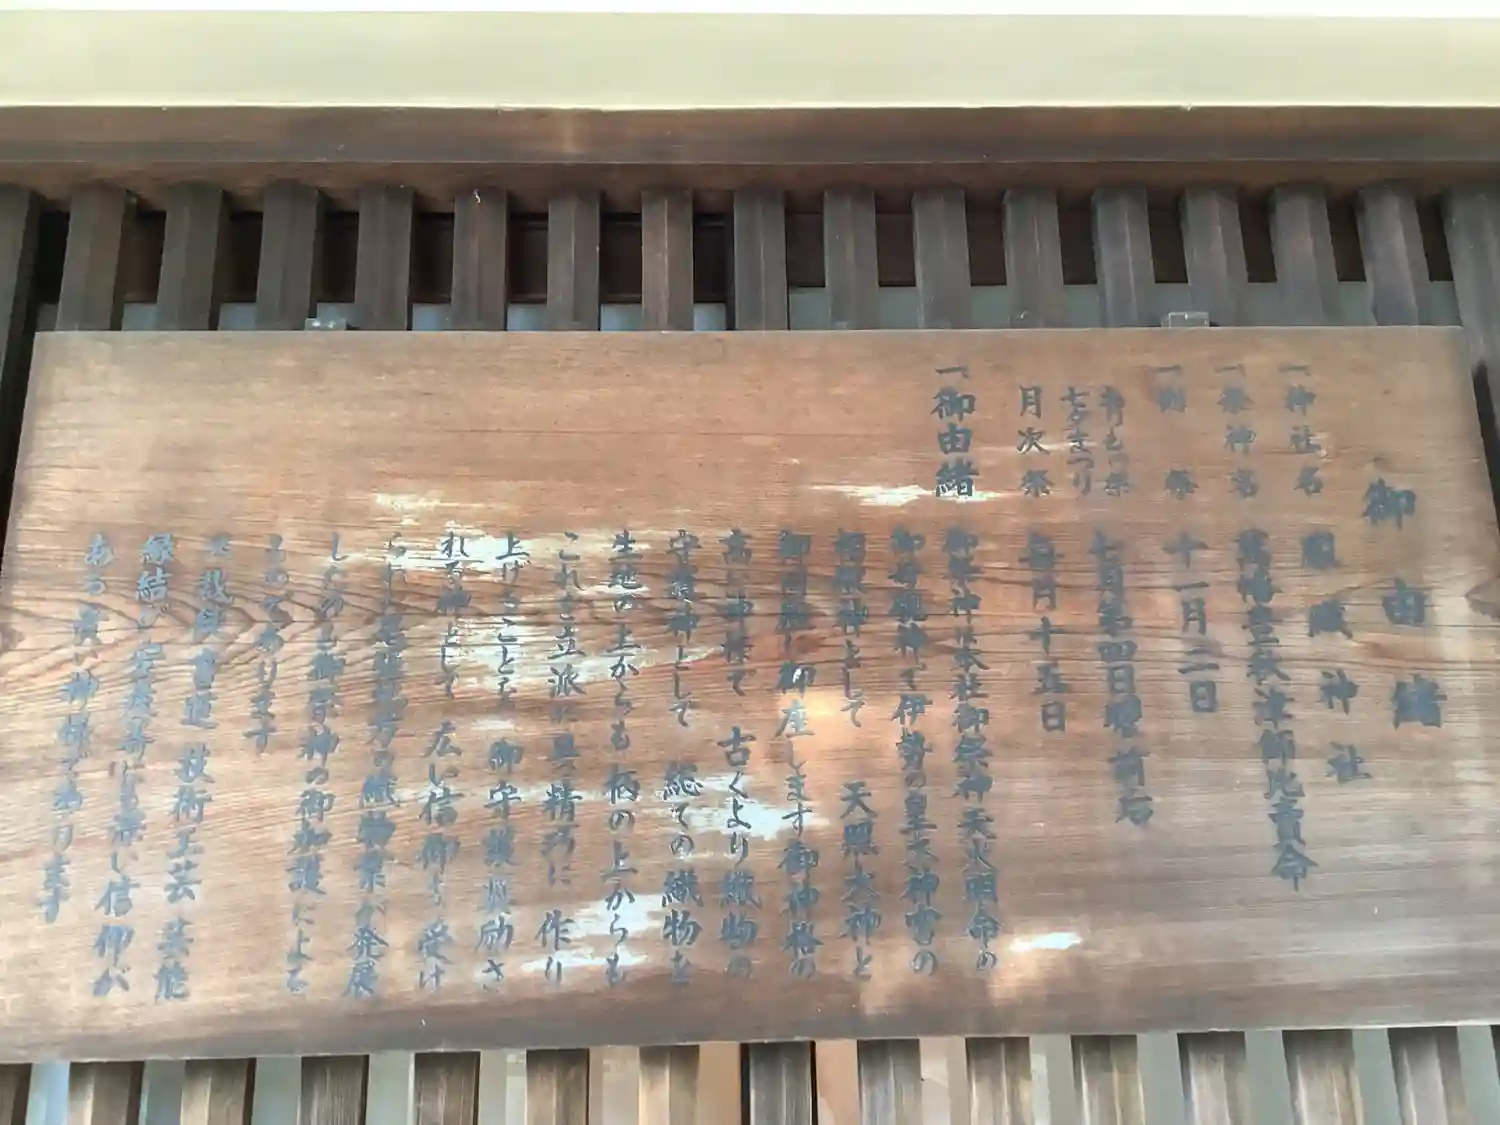 御由緒
一神社名 服部神社
一祭神名 萬幡豊秋津師比賣命
一例祭 十一月二日
おりもの祭 七月第四日曜前后
七夕まつり
月次祭 毎月十五日
一御由緒 御祭神は本社御祭神天火明命の
御母親神で伊勢の皇大神宮の
相殿神として 天照大神と
御同殿に御座します御神格の
高い神様で 古くより織物の
守護神として 総ての織物を
生地の上からも柄の上からも
これを立派に具精巧に 作り
上げることを 御守護奨励さ
れる神として 広い信仰を受け
られ 尾張地方の織物業が発展
したのも御祭神の御加護による
ものであります
又裁縫 書道 技術工芸 芸能
縁結び 安産等にも深い信仰が
ある貴い神様であります